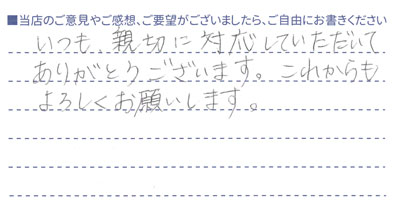 ■当店のご意見やご感想、ご要望がございましたら、ご自由にお書きください
いつも、親切に対応していただいて
ありがとうございます。これからも
よろしくお願いします。